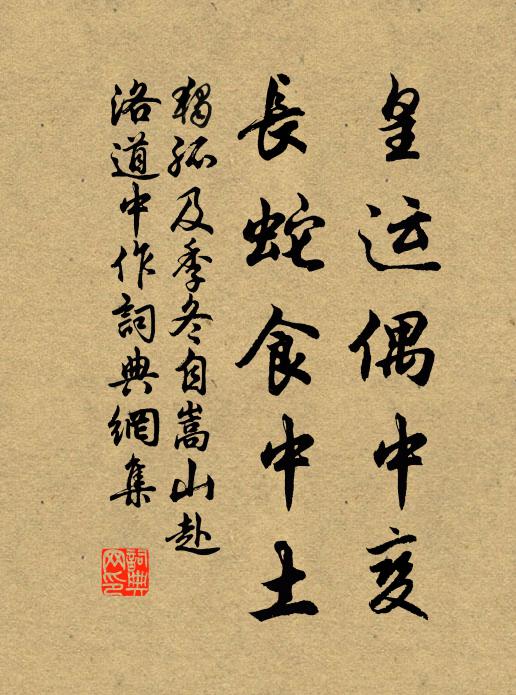 皇运偶中变
長蛇食中土
獨孤及季冬自嵩山赴
洛道中作詞典網集
詞典网印